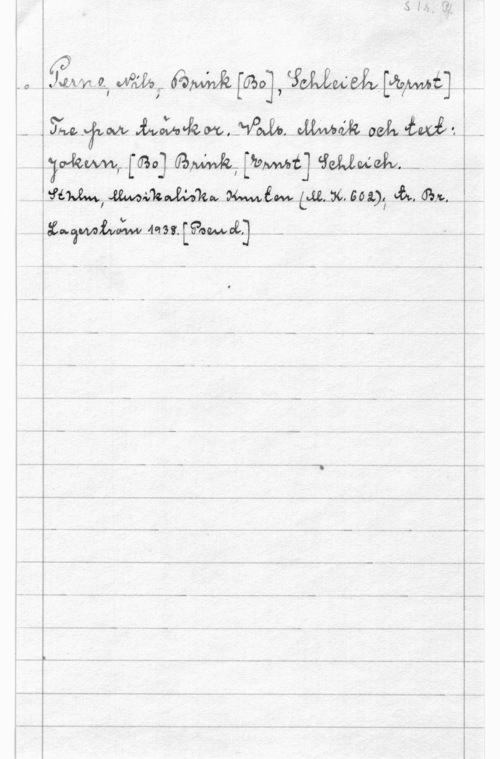 Perne, Nils, Brink [Bo], Schleich [Ernst]
Tre par träskor. Vals. Musik och text:
Jokern, [Bo] Brink, [Ernst] Schleich.
Sthlm, Musikaliska Knuten (M. K. 602), tr. Br.
Lagerström 1938. [Pseud.]